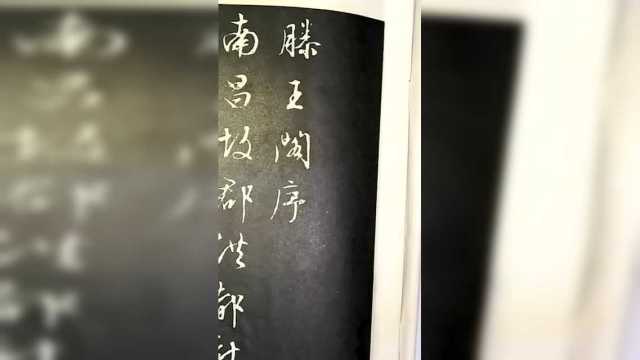 滕王阁序
南昌故郡洪都